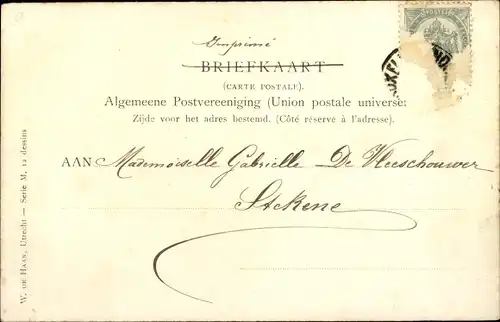 Imprimé
BRIEFKAART
(CARTE POSTALE).
Algemeene Postvereeniging (Union postale universe
Zijde voor het adres bestemd. (Côté réservé à l'adresse).
AAN Mademoiselle Gabrielle De Vleeschouwer
Stekene
W. DE HAAN, Utrecht — Serie M. 12 dessins